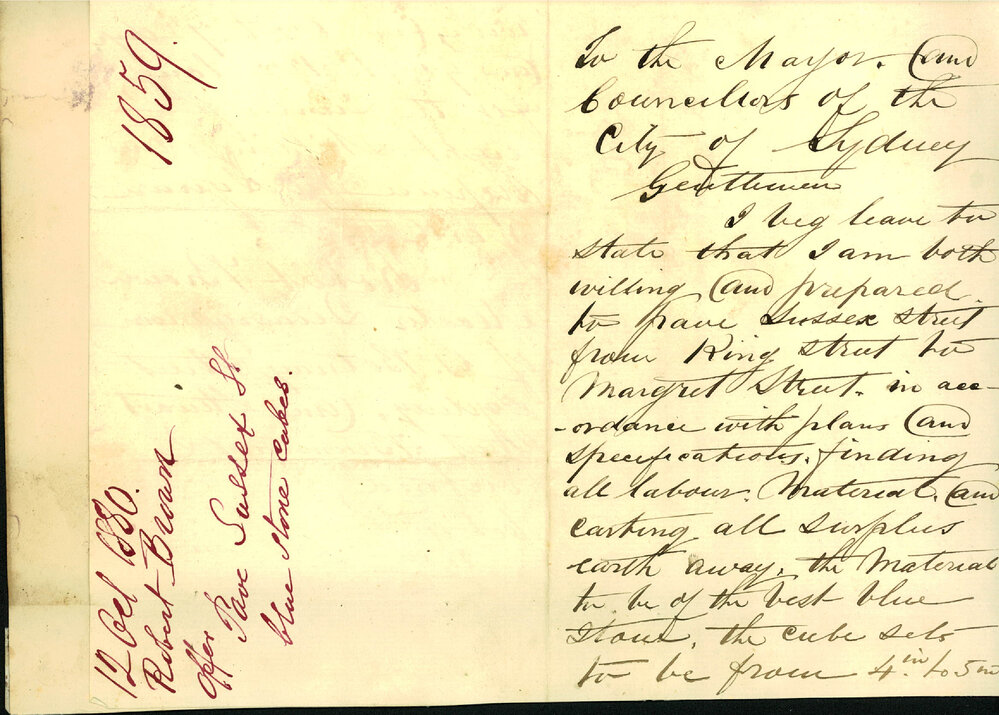 1859
12 Oct 1880.
Robert Brown
Offer
Pave Sussex St
blue stone cubes.
To the Mayor. and
Councillors of the
City of Sydney
Gentlemen
I beg leave to
state that I am both
willing and prepared
to pave Sussex Street
from King Street to
Margret Street. in acc-
-ordance with plans and
specifications. finding
all labour. Material. and
carting all surplus
earth away. the Material
to be of the best blue
stone, the cube sets
to be from 4in to 5in